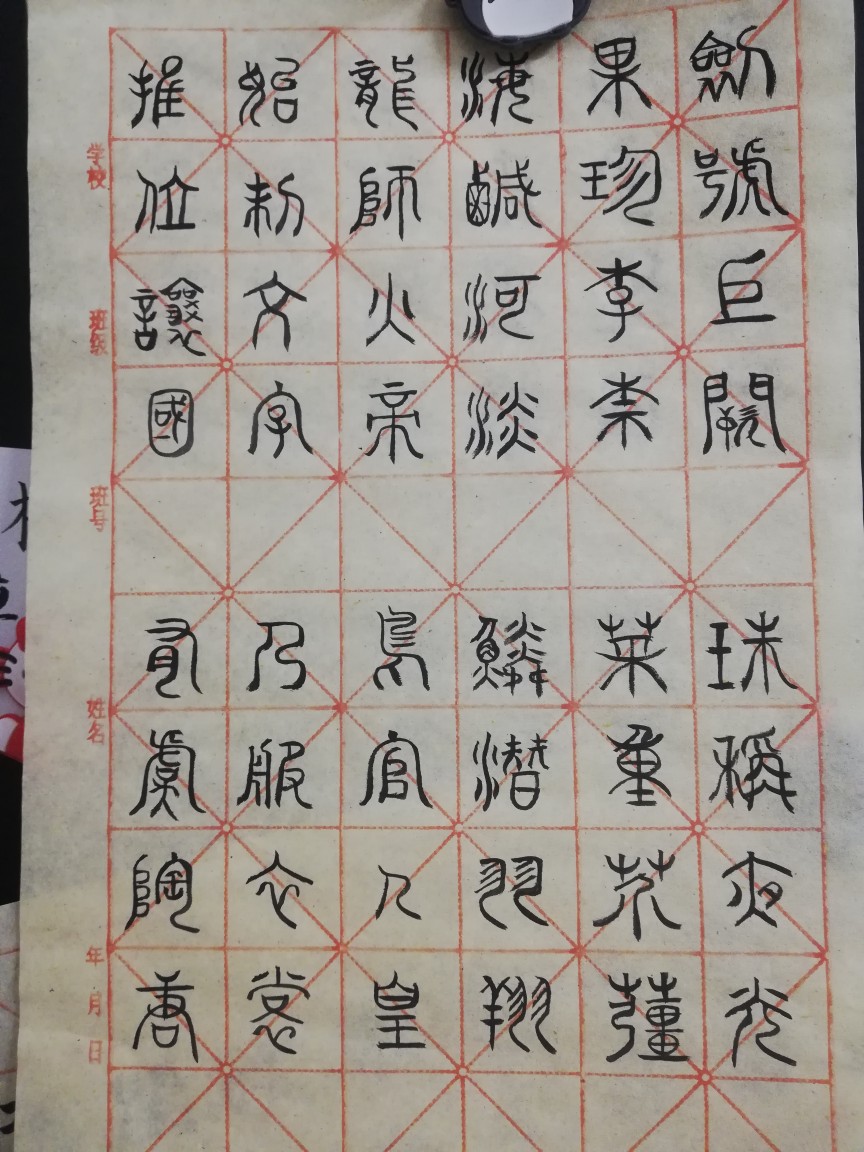 劍號巨闕 珠稱夜光
果珍李柰 菜重芥薑
海鹹河淡 鱗潛羽翔
龍師火帝 鳥官人皇
始制文字 乃服衣裳
推位讓國 有虞陶唐
学校 班级 班号 姓名 年 月 日